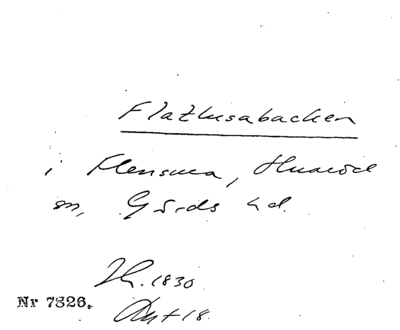 Flathusabacken
i Klensma, Huaröd
sn, Gärds hd.
Th. 1830
Nr 7326.
Akt 18.